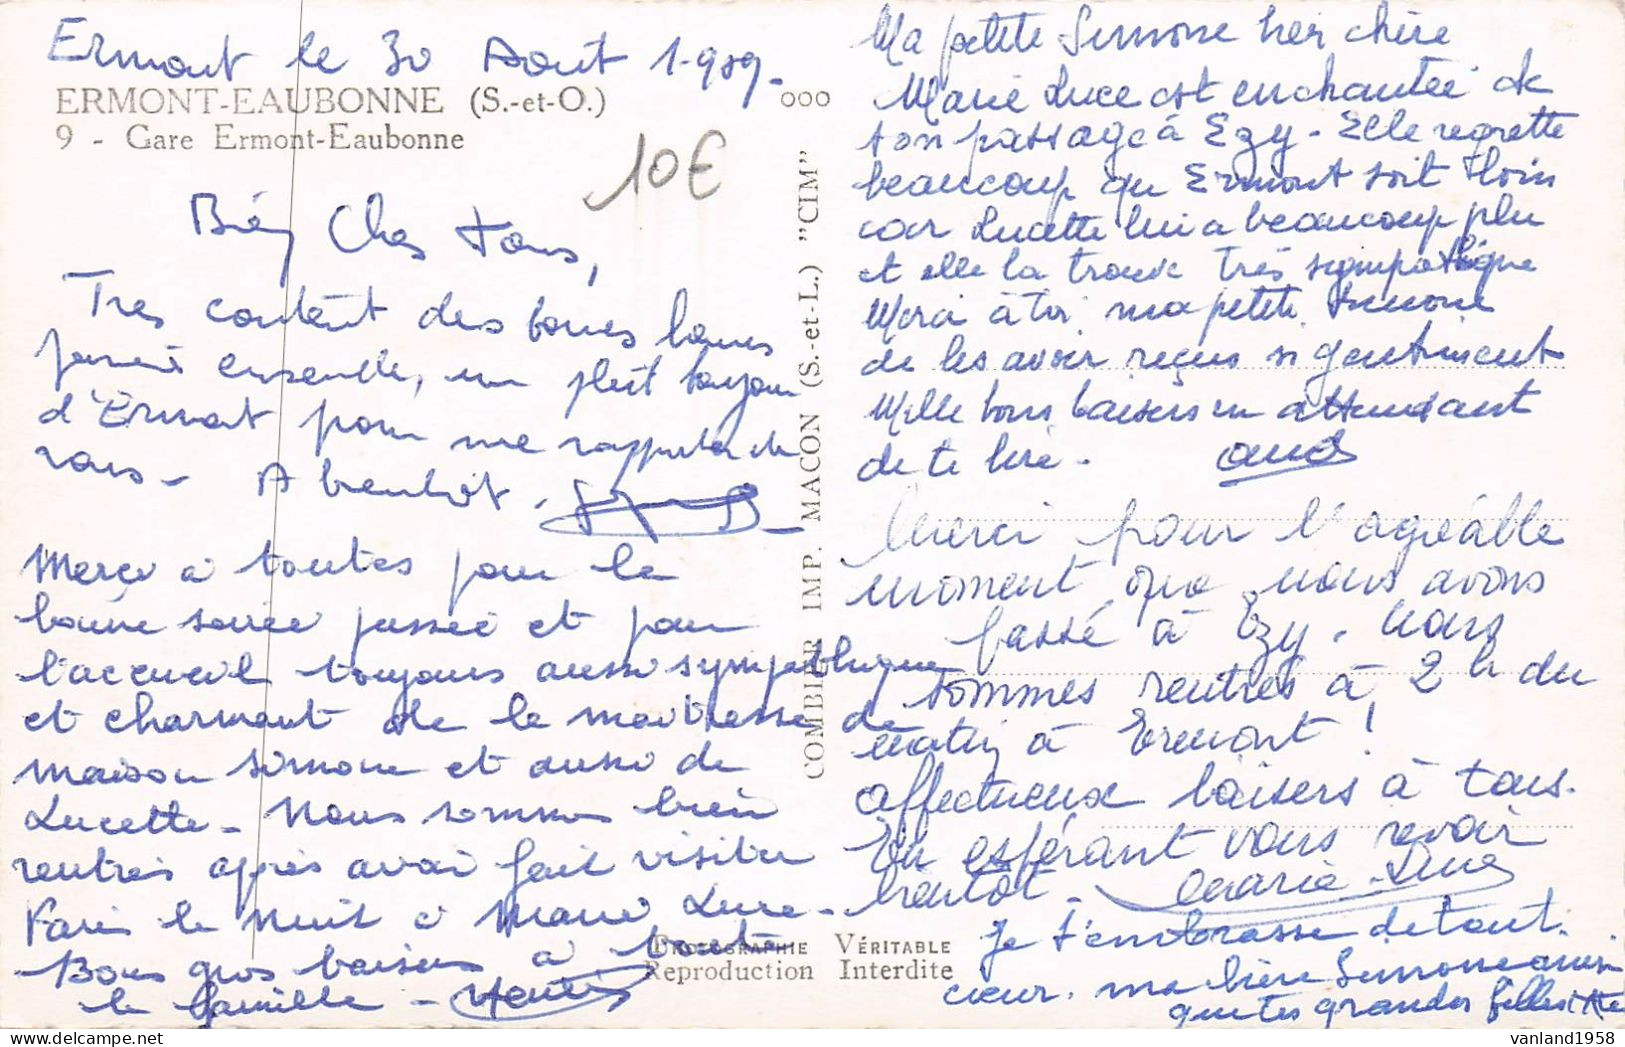 Ermont le 30 Août 1-959-
ERMONT-EAUBONNE (S.-et-O.)
9 - Gare Ermont-Eaubonne
10€
000
Bien Chers tous,
Très content des bonnes
journée ensemble, un petit bonjour
d'Ermont pour me rappeler de
vous - A bientôt.
Merci à toutes pour la
bonne soirée passée et pour
l'accueil toujours aussi sympathique
et charmant de la maîtresse de
maison Simone et aussi de
Lucette - Nous sommes bien
rentrés après avoir fait visiter
Paris la nuit à Marie Luce -
Bons gros baisers à toute
la famille -
COMBIER IMP. MACON (S.-et-L.) "CIM"
PHOTOGRAPHIE VÉRITABLE
Reproduction Interdite
Ma petite Simone chère
Marie Luce est enchantée de
son passage à Ezy - Elle regrette
beaucoup qu Ermont soit loin
car Lucette lui a beaucoup plu
et elle la trouve très sympathique
Merci à toi ma petite Simone
de les avoir reçus si gentiment
Mille bons baisers en attendant
de te lire -
Merci pour l'agréable
moment que nous avons
passé à Ezy. Nous
sommes rentrés à 2 h du
matin à Ermont !
affectueux baisers à tous.
En espérant vous revoir
bientôt - Marie-Luce
Je t'embrasse de tout
cœur. ma Simone ainsi
que tes grandes filles
vanland1958